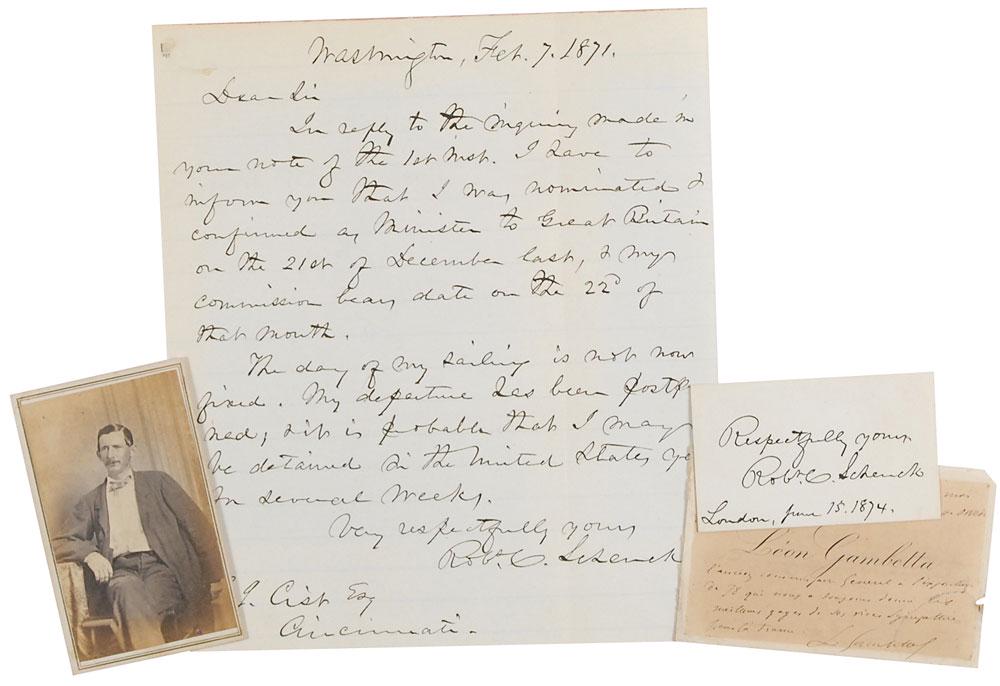 Washington, Feb. 7. 1871.
Dear Sir
In reply to the inquiry made in
your note of the 1st inst. I have to
inform you that I was nominated &
confirmed as Minister to Great Britain
on the 21st of December last, & my
commission bears date on the 22d of
that month.
The day of my sailing is not now
fixed. My departure has been postp
ned; & it is probable that I may
be detained in the United States ye
for several weeks.
Very respectfully yours
Robt. C. Schenck
J. Cist Esq
Cincinnati.
Respectfully yours
Robt. C. Schenck
London, June 15. 1874.
Léon Gambetta
l'ancien commissaire général à l'exposition
de 78 qui nous a toujours donné les
meilleurs gages de ses vives sympathies
pour la France
L. Gambetta